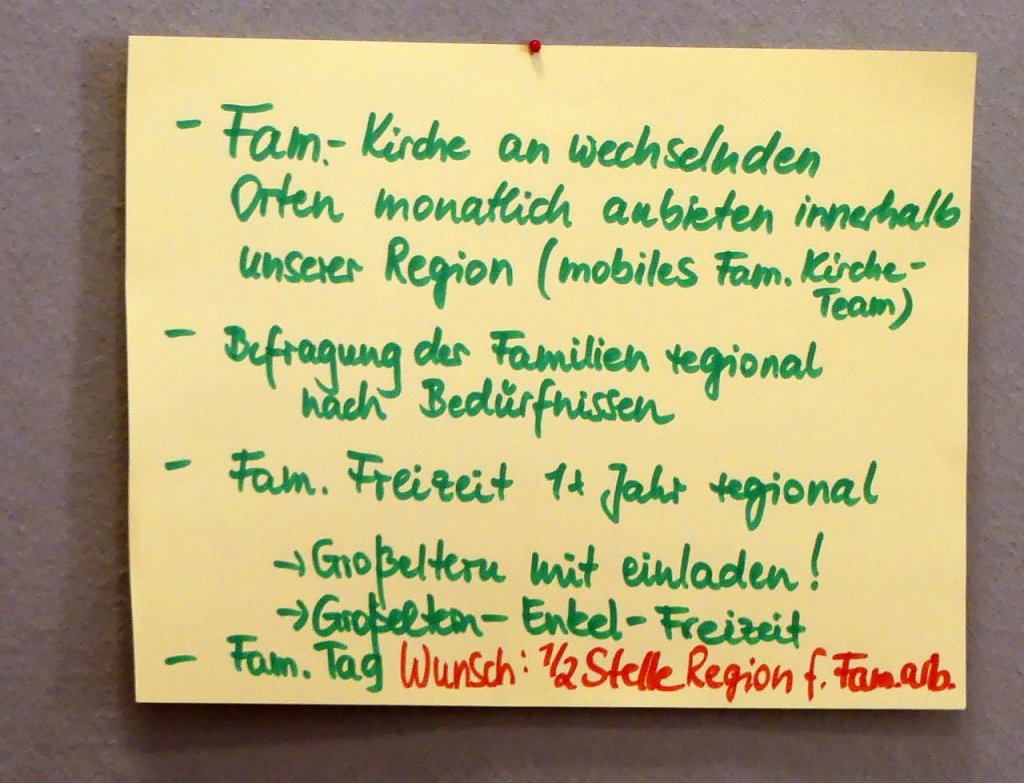 - Fam.- Kirche an wechselnden
Orten monatlich anbieten innerhalb
unserer Region (mobiles Fam. Kirche-
Team)
- Befragung der Familien regional
nach Bedürfnissen
- Fam. Freizeit 1x Jahr regional
→ Großeltern mit einladen!
→ Großeltern - Enkel - Freizeit
- Fam. Tag Wunsch: 1/2 Stelle Region f. Fam.arb.